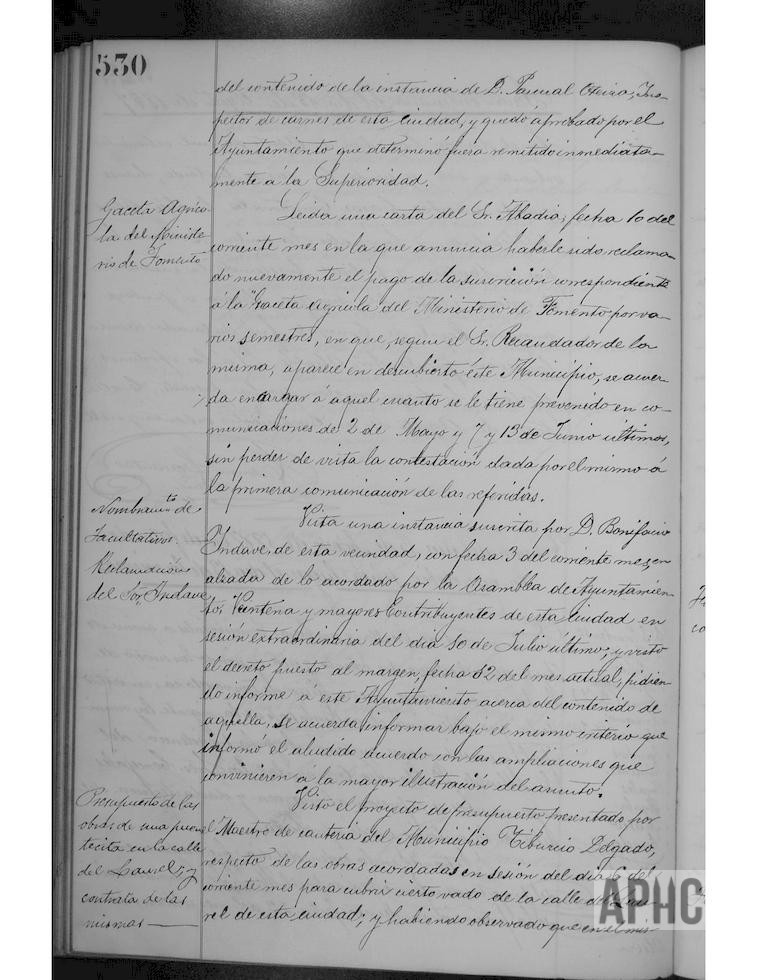 530
del contenido de la instancia de D. Pascual Oteiza, Ins-
pector de carnes de esta ciudad, y quedó aprobado por el
Ayuntamiento que determinó fuera remitido inmediata-
mente á la Superioridad.
Gaceta Agrico-
la del Ministe
rio de Fomento
Leida una carta del Sr. Abadia, fecha 10 del
corriente mes en la que anuncia haberle sido reclama-
do nuevamente el pago de la suscrición correspondiente
á la "Gaceta Agricola del Ministerio de Fomento por va-
rios semestres, en que, segun el Sr. Recaudador de la
misma, aparece en descubierto éste Municipio, se acuer-
da encargar á aquel cuanto se le tiene prevenido en co-
municaciones de 2 de Mayo y 7 y 13 de Junio últimos,
sin perder de vista la contestación dada por el mismo á
la primera comunicación de las referidas.
Nombramto de
Facultativos.
Reclamación
del Sor. Indave
Vista una instancia suscrita por D. Bonifacio
Indave, de esta vecindad, con fecha 3 del corriente mes en
alzada de lo acordado por la Asamblea de Ayuntamien-
to, Veintena y mayores Contribuyentes de esta ciudad en
sesión extraordinaria del dia 10 de Julio último; y visto
el decreto puesto al margen, fecha 12 del mes actual, pidien-
do informe á este Ayuntamiento acerca del contenido de
aquella, se acuerda informar bajo el mismo criterio que
informó el aludido acuerdo con las ampliaciones que
convinieren á la mayor ilustración del asunto.
Presupuesto de las
obras de una puen
tecita en la calle
del Laurel, y
contrata de las
mismas
Visto el proyecto de presupuesto presentado por
el Maestro de cantería del Municipio Tiburcio Delgado,
respecto de las obras acordadas en sesión del dia 6 del
corriente mes para cubrir cierto vado de la calle del Lau-
rel de esta ciudad; y habiendo observado que en el mis-
APHC